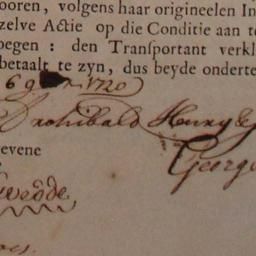 ooren, volgens haar origineelen In
zelve Actie op die Conditie aan te
oegen: den Transportant verkl
betaalt te zyn, dus beyde onderte
1720
Archibald Henry
George
evene